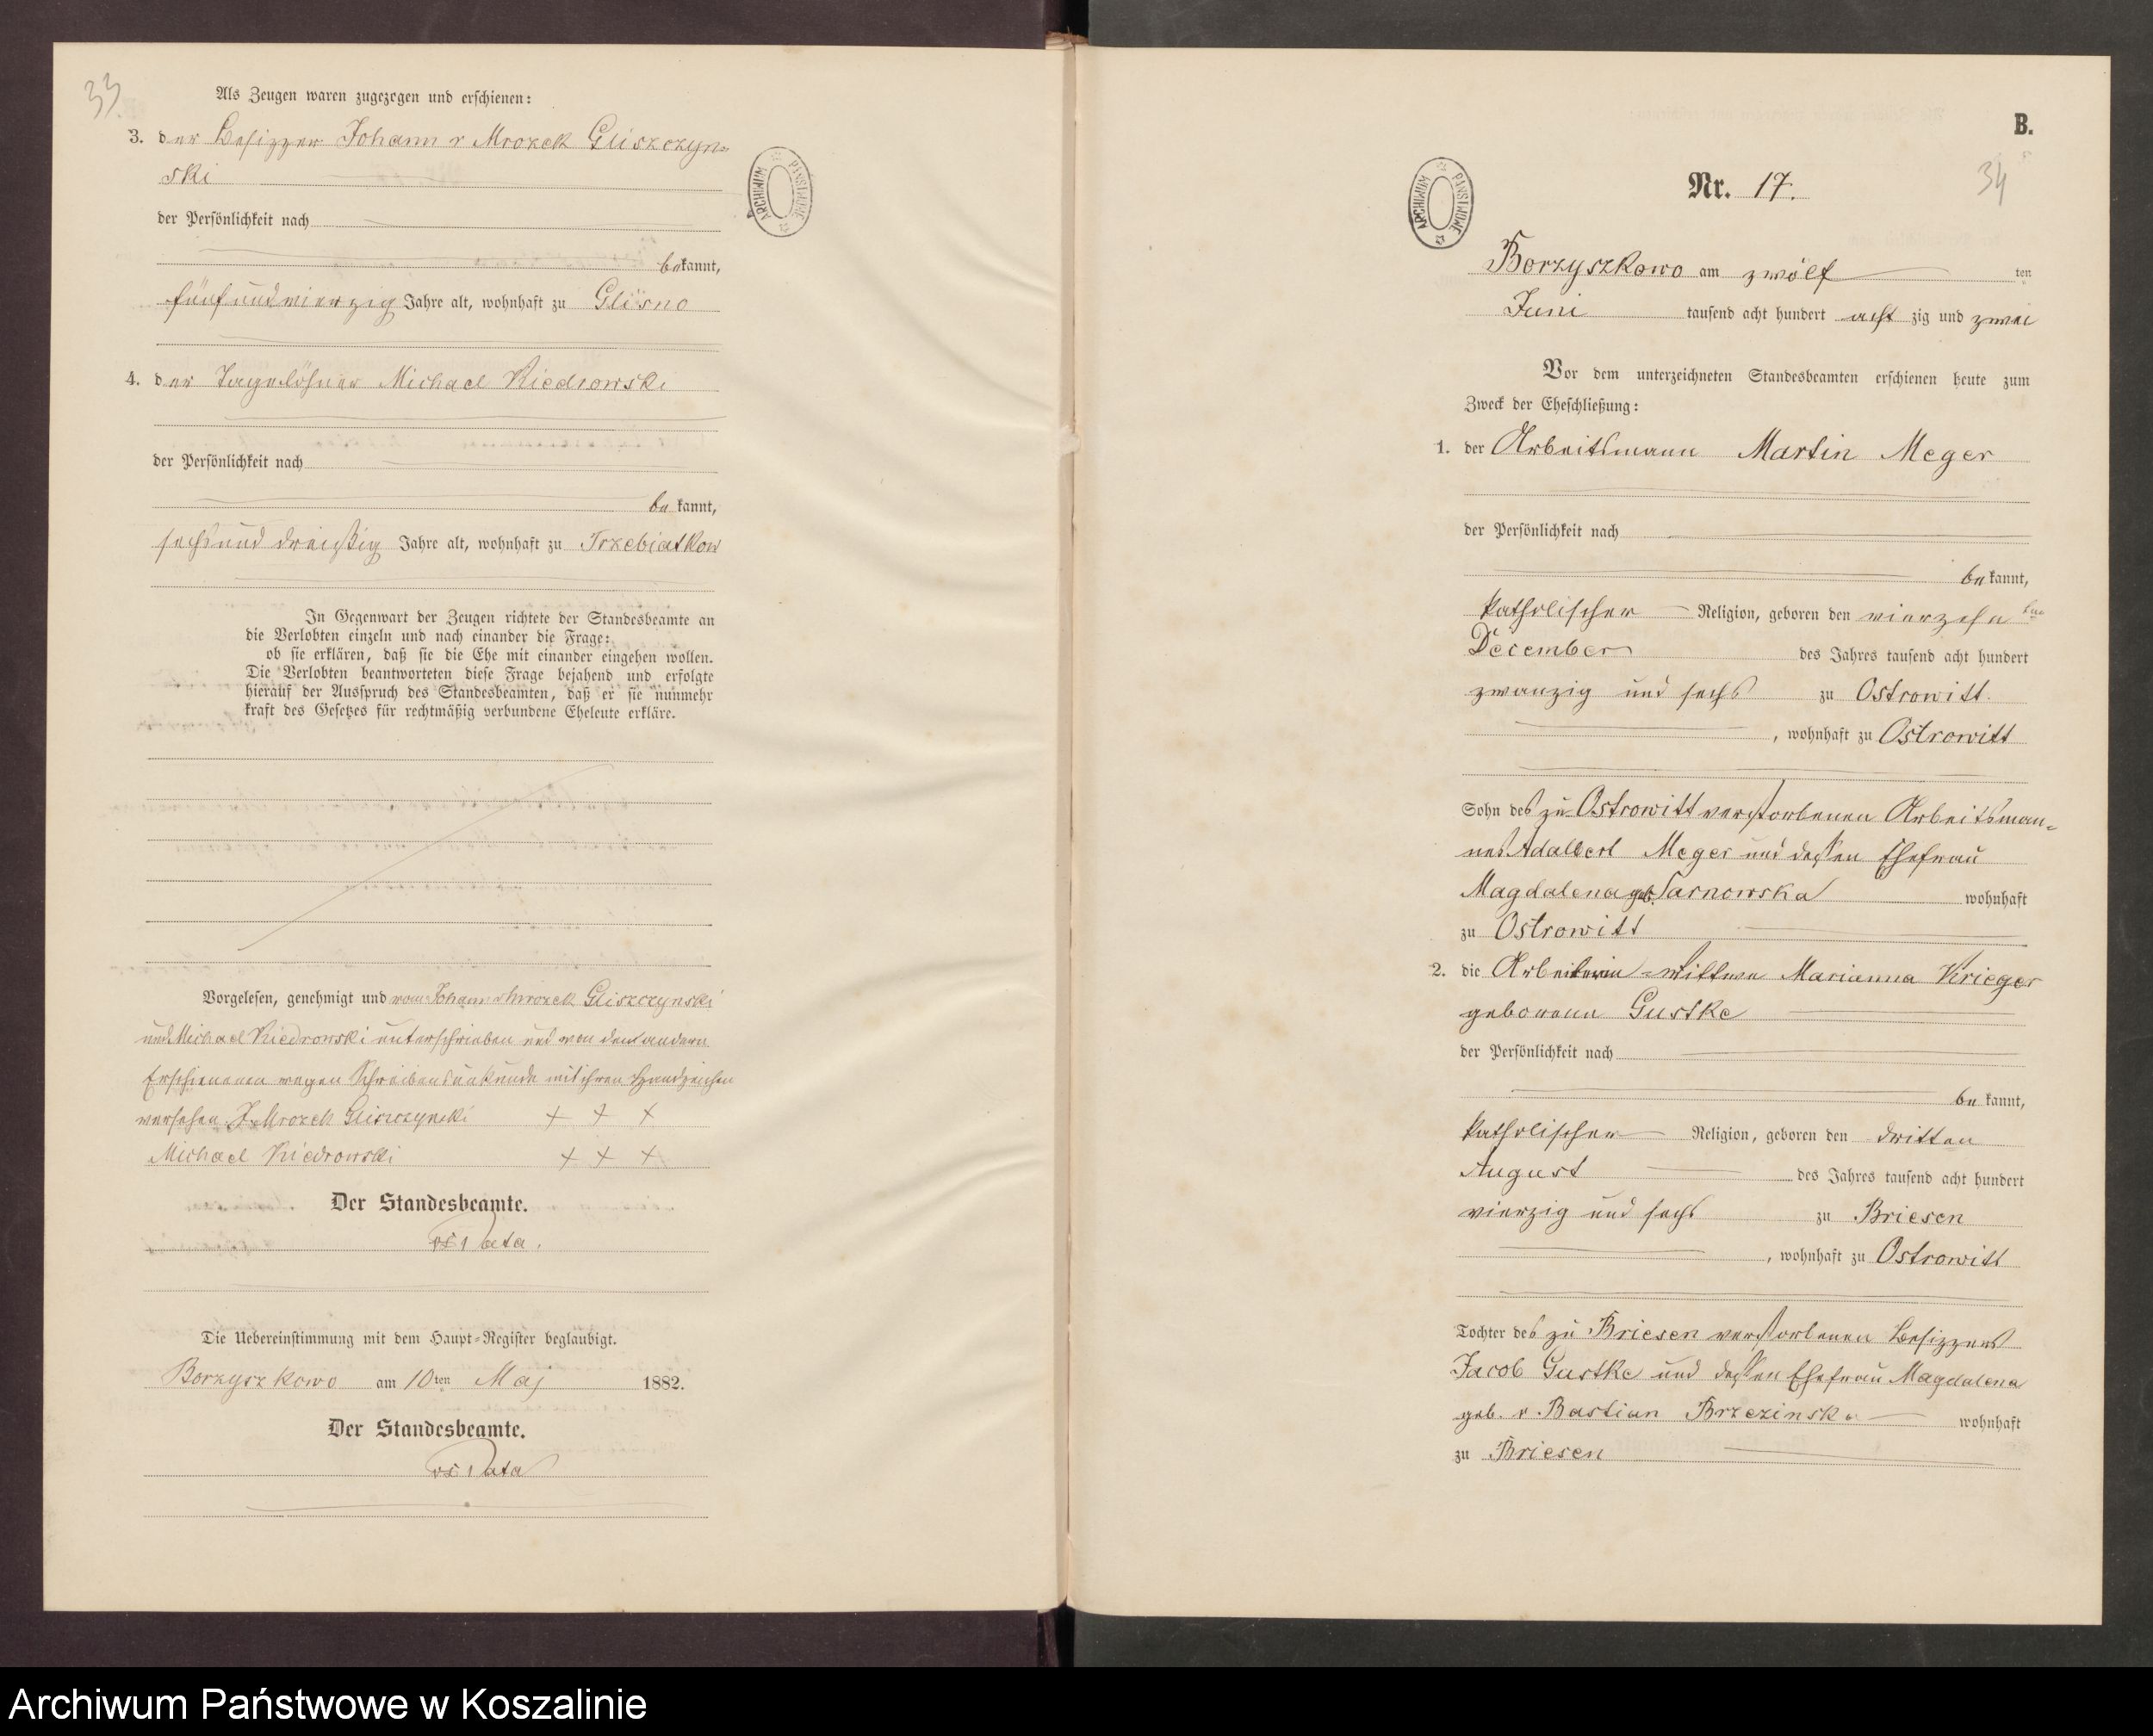 33.
Als Zeugen waren zugezogen und erschienen:
3. der Besitzer Johann v Mrozek Gliszczyn-
ski
der Persönlichkeit nach
bekannt,
fünfundvierzig Jahre alt, wohnhaft zu Glisno
4. der Tagelöhner Michael Kiedrowski
der Persönlichkeit nach
bekannt,
sechsunddreißig Jahre alt, wohnhaft zu Trzebiatkow
In Gegenwart der Zeugen richtete der Standesbeamte an
die Verlobten einzeln und nach einander die Frage:
ob sie erklären, daß sie die Ehe mit einander eingehen wollen.
Die Verlobten beantworteten diese Frage bejahend und erfolgte
hierauf der Ausspruch des Standesbeamten, daß er sie nunmehr
kraft des Gesetzes für rechtmäßig verbundene Eheleute erkläre.
Vorgelesen, genehmigt und vom Johann v Mrozek Gliszczynski
und Michael Kiedrowski unterschrieben und von den andern
Erschienenen wegen Schreibensunkunde mit ihren Handzeichen
versehen J. v Mrozek Gliszczynski + + +
Michael Kiedrowski + + +
Der Standesbeamte.
Die Uebereinstimmung mit dem Haupt-Register beglaubigt.
Borzyszkowo am 10ten Maj 1882.
Der Standesbeamte.
ARCHIWUM PAŃSTWOWE
B.
34
Nr. 17.
ARCHIWUM PAŃSTWOWE
Borzyszkowo am zwölf ten
Juni tausend acht hundert acht zig und zwei
Vor dem unterzeichneten Standesbeamten erschienen heute zum
Zweck der Eheschließung:
1. der Arbeitsmann Martin Meger
der Persönlichkeit nach
bekannt,
katholischer Religion, geboren den vierzehnten
December des Jahres tausend acht hundert
zwanzig und sechs zu Ostrowitt
, wohnhaft zu Ostrowitt
Sohn des zu Ostrowitt verstorbenen Arbeitsman-
nes Adalbert Meger und dessen Ehefrau
Magdalena geb. Tarnowska wohnhaft
zu Ostrowitt
2. die Arbeiterin-Wittwe Marianna Krieger
geborene Gustke
der Persönlichkeit nach
bekannt,
katholischer Religion, geboren den dritten
August des Jahres tausend acht hundert
vierzig und sechs zu Briesen
, wohnhaft zu Ostrowitt
Tochter des zu Briesen verstorbenen Besitzers
Jacob Gustke und dessen Ehefrau Magdalena
geb. v. Bastian Brzezinska wohnhaft
zu Briesen
Archiwum Państwowe w Koszalinie